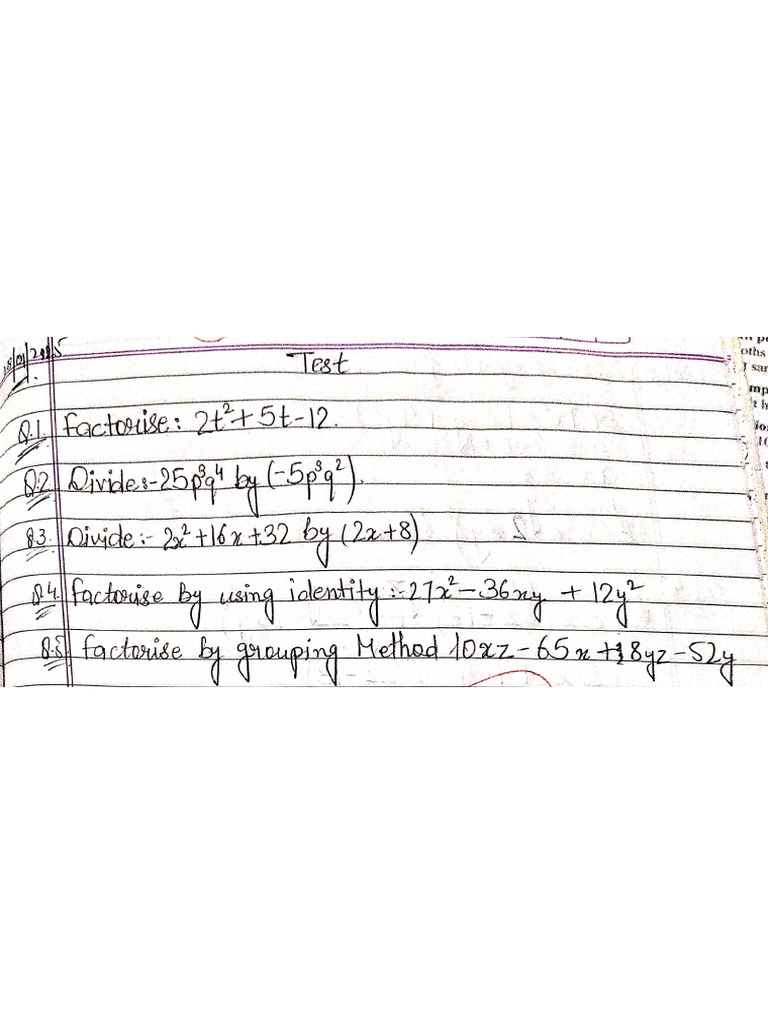 Test
Q.1. Factorise: 2t²+5t-12.
Q.2 Divide:-25p³q⁴ by (-5p³q²).
Q.3. Divide:- 2x²+16x+32 by (2x+8)
Q.4. Factorise by using identity:-27x²-36xy + 12y²
Q.5 factorise by grouping Method 10xz-65x+8yz-52y